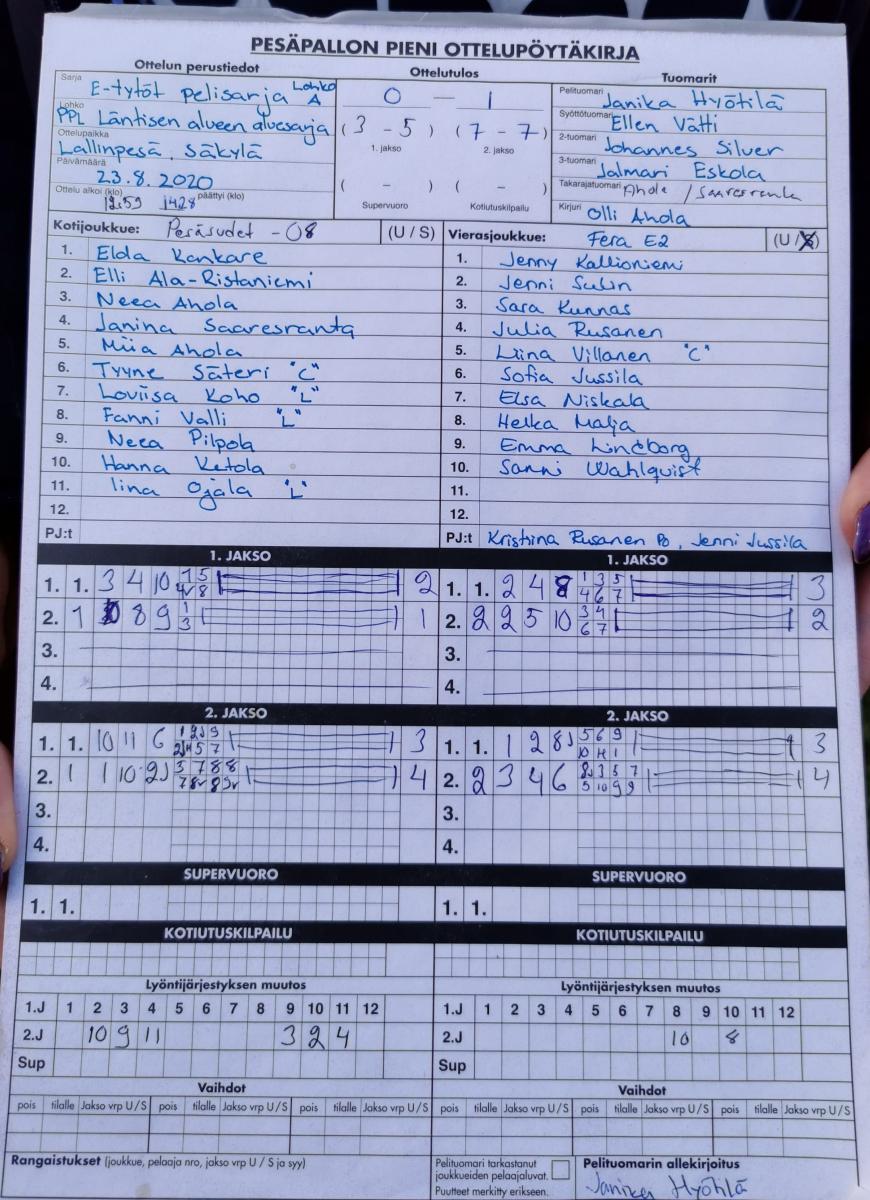 PESÄPALLON PIENI OTTELUPÖYTÄKIRJA
Ottelun perustiedot
Sarja E-tytöt pelisarja Lohko A
Lohko PPL Läntisen alueen aluesarja
Ottelupaikka Lallinpesä, Säkylä
Päivämäärä 23.8.2020
Ottelu alkoi (klo) päättyi (klo) 1428
Ottelutulos
0 — 1
(3 - 5) (7 - 7)
1. jakso 2. jakso
( - ) ( - )
Supervuoro Kotiutuskilpailu
Tuomarit
Pelituomari Janika Hyötilä
Syöttötuomari Ellen Vätti
2-tuomari Johannes Silver
3-tuomari Jalmari Eskola
Takarajatuomari Ahola / Saaresranta
Kirjuri Olli Ahola
Kotijoukkue: Pesäsudet -08 (U / S)
1. Elda Kankare
2. Elli Ala-Ristaniemi
3. Neea Ahola
4. Janina Saaresranta
5. Miia Ahola
6. Tyyne Säteri "C"
7. Loviisa Koho "L"
8. Fanni Valli "L"
9. Neea Pilpola
10. Hanna Ketola
11. Iina Ojala "L"
12.
PJ:t
Vierasjoukkue: Fera E2 (U / S)
1. Jenny Kallioniemi
2. Jenni Salin
3. Sara Kunnas
4. Julia Rusanen
5. Liina Villanen "C"
6. Sofia Jussila
7. Elsa Niskala
8. Helka Malja
9. Emma Lindborg
10. Sanni Wahlquist
11.
12.
PJ:t Kristiina Rusanen Po, Jenni Jussila
1. JAKSO
1. 1. 3 4 10 2
2. 1 8 9 1 3 1
3.
4.
1. JAKSO
1. 1. 2 4 8 1 3 5 4 6 7 3
2. 2 2 5 10 3 4 6 7 2
3.
4.
2. JAKSO
1. 1. 10 11 6 3
2. 1 1 10 2J 4
3.
4.
2. JAKSO
1. 1. 1 2 8J 5 6 9 10 11 1 3
2. 2 3 4 6 4
3.
4.
SUPERVUORO
1. 1.
SUPERVUORO
1. 1.
KOTIUTUSKILPAILU
KOTIUTUSKILPAILU
Lyöntijärjestyksen muutos
1.J 1 2 3 4 5 6 7 8 9 10 11 12
2.J 10 9 11 3 2 4
Sup
Lyöntijärjestyksen muutos
1.J 1 2 3 4 5 6 7 8 9 10 11 12
2.J 10 8
Sup
Vaihdot
pois tilalle Jakso vrp U / S pois tilalle Jakso vrp U / S pois tilalle Jakso vrp U / S
Vaihdot
pois tilalle Jakso vrp U / S pois tilalle Jakso vrp U / S pois tilalle Jakso vrp U / S
Rangaistukset (joukkue, pelaaja nro, jakso vrp U / S ja syy)
Pelituomari tarkastanut
joukkueiden pelaajaluvat.
Puutteet merkitty erikseen.
Pelituomarin allekirjoitus
Janika Hyötilä